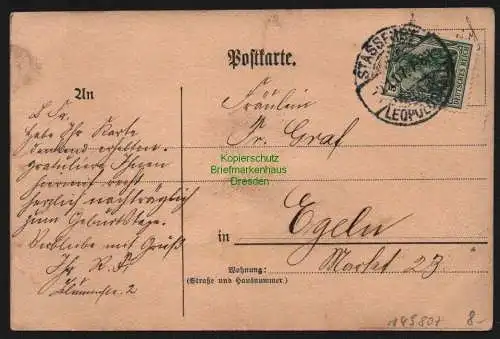 Postkarte.
STASSFURT
LEOPOLD
DEUTSCHES REICH
An
Fräulein
Fr. Graf
Egeln
in
Markt 23.
Wohnung:
(Straße und Hausnummer)
L. Fr.
Habe Ihr Karte
dankend erhalten.
gratuliere Ihnen
hiermit recht
herzlich nachträglich
zum Geburtstage.
Verbleibe mit Gruß
Ihr R. F.
Blumenstr. 2
Kopierschutz
Briefmarkenhaus
Dresden
145807
8-